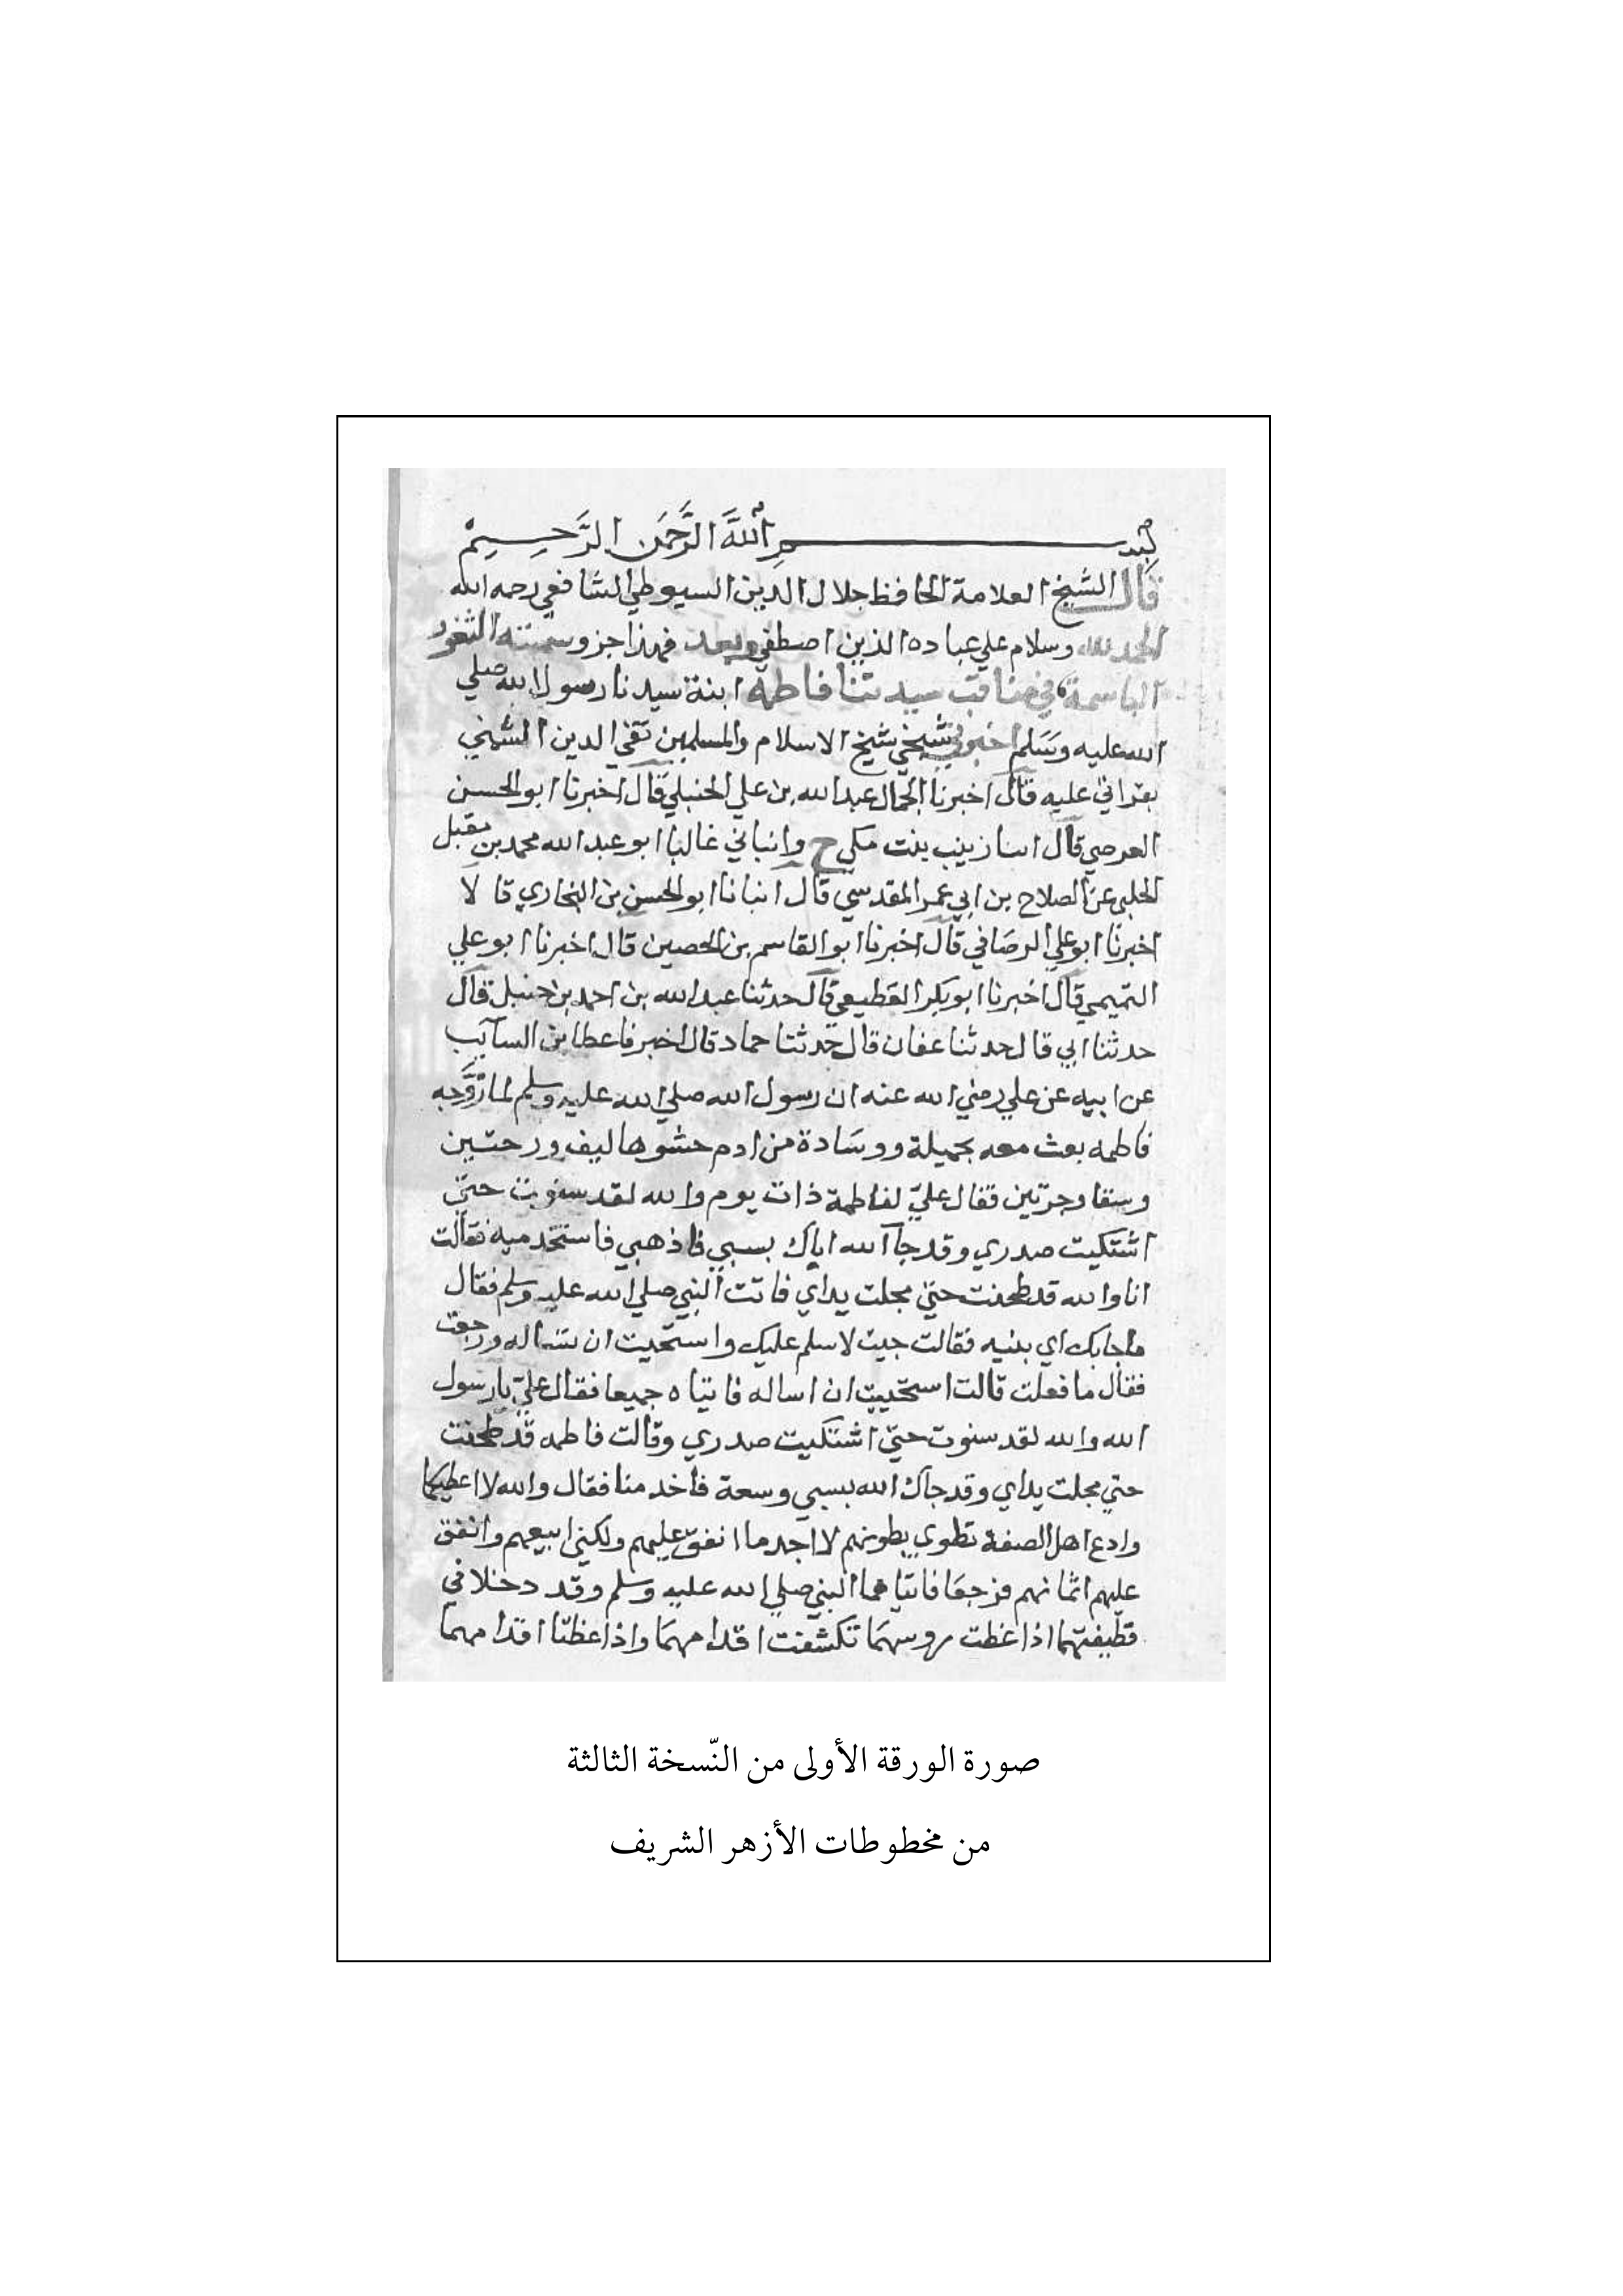 بسم الله الرَّحمَن الرَّحيم
قال الشيخ العلامة الحافظ جلال الدين السيوطي الشافعي رحمه الله
الحمد لله وسلام علي عباده الذين اصطفي وبعد فهذا جزو سميته الثغور
الباسمة في مناقب سيدتنا فاطمة ابنة سيدنا رسول الله صلي
الله عليه وسَلم اخبرني شيخي شيخ الاسلام والمسلمين تقي الدين الشمني
بقراتي عليه قال اخبرنا الجمال عبد الله بن علي الحنبلي قال اخبرنا ابو الحسن
العرضي قال انبا زينب بنت مكي ح وانباني غالبا ابو عبد الله محمد بن مقبل
الحلبي عن الصلاح بن ابي عمر المقدسي قال انبانا ابو الحسن بن البخاري قالا
اخبرنا ابو علي الرصَافي قال اخبرنا ابو القاسم بن الحصين قال اخبرنا ابو علي
التميمي قال اخبرنا ابو بكر القطيعي قال حدثنا عبد الله بن احمد بن حنبل قال
حدثنا ابي قال حدثنا عفان قال حدثنا حماد قال اخبرنا عطا بن السايب
عن ابيه عن علي رضي الله عنه ان رسول الله صلي الله عليه وسلم لما تزَوَّجه
فاطمه بعث معه بخميلة ووسَادة من ادم حشوها ليف ورحتين
وسقا وجرتين فقال عليّ لفاطمة ذات يوم والله لقد سنوت حتي
اشتكيت صدري وقد جا الله اباك بسبي فاذهبي فاستخدميه فقالت
انا والله قد طحنت حتي مجلت يداي فاتت النبي صلي الله عليه وسلم فقال
ماجابك اي بنيه فقالت جيت لاسلم عليك واستحيت ان تساله ورجعت
فقال ما فعلت قالت استحييت ان اساله فاتياه جميعا فقال عليّ يا رسول
الله والله لقد سنوت حتي اشتكيت صدري وقالت فاطمه قد طحنت
حتي مجلت يداي وقد جاك الله بسبي وسعة فاخدمنا فقال والله لا اعطيكما
وادع اهل الصفة تطوي بطونهم لا اجد ما انفق عليهم ولكني ابيعهم وانفق
عليهم اثمانهم فرجعَا فاتاهما النبي صلي الله عليه وسلم وقد دخلا في
قطيفتهما اذا غطت روسهمَا تكشفت اقدامهمَا واذا غطتا اقدامهمَا
صورة الورقة الأولى من النّسخة الثالثة
من مخطوطات الأزهر الشريف